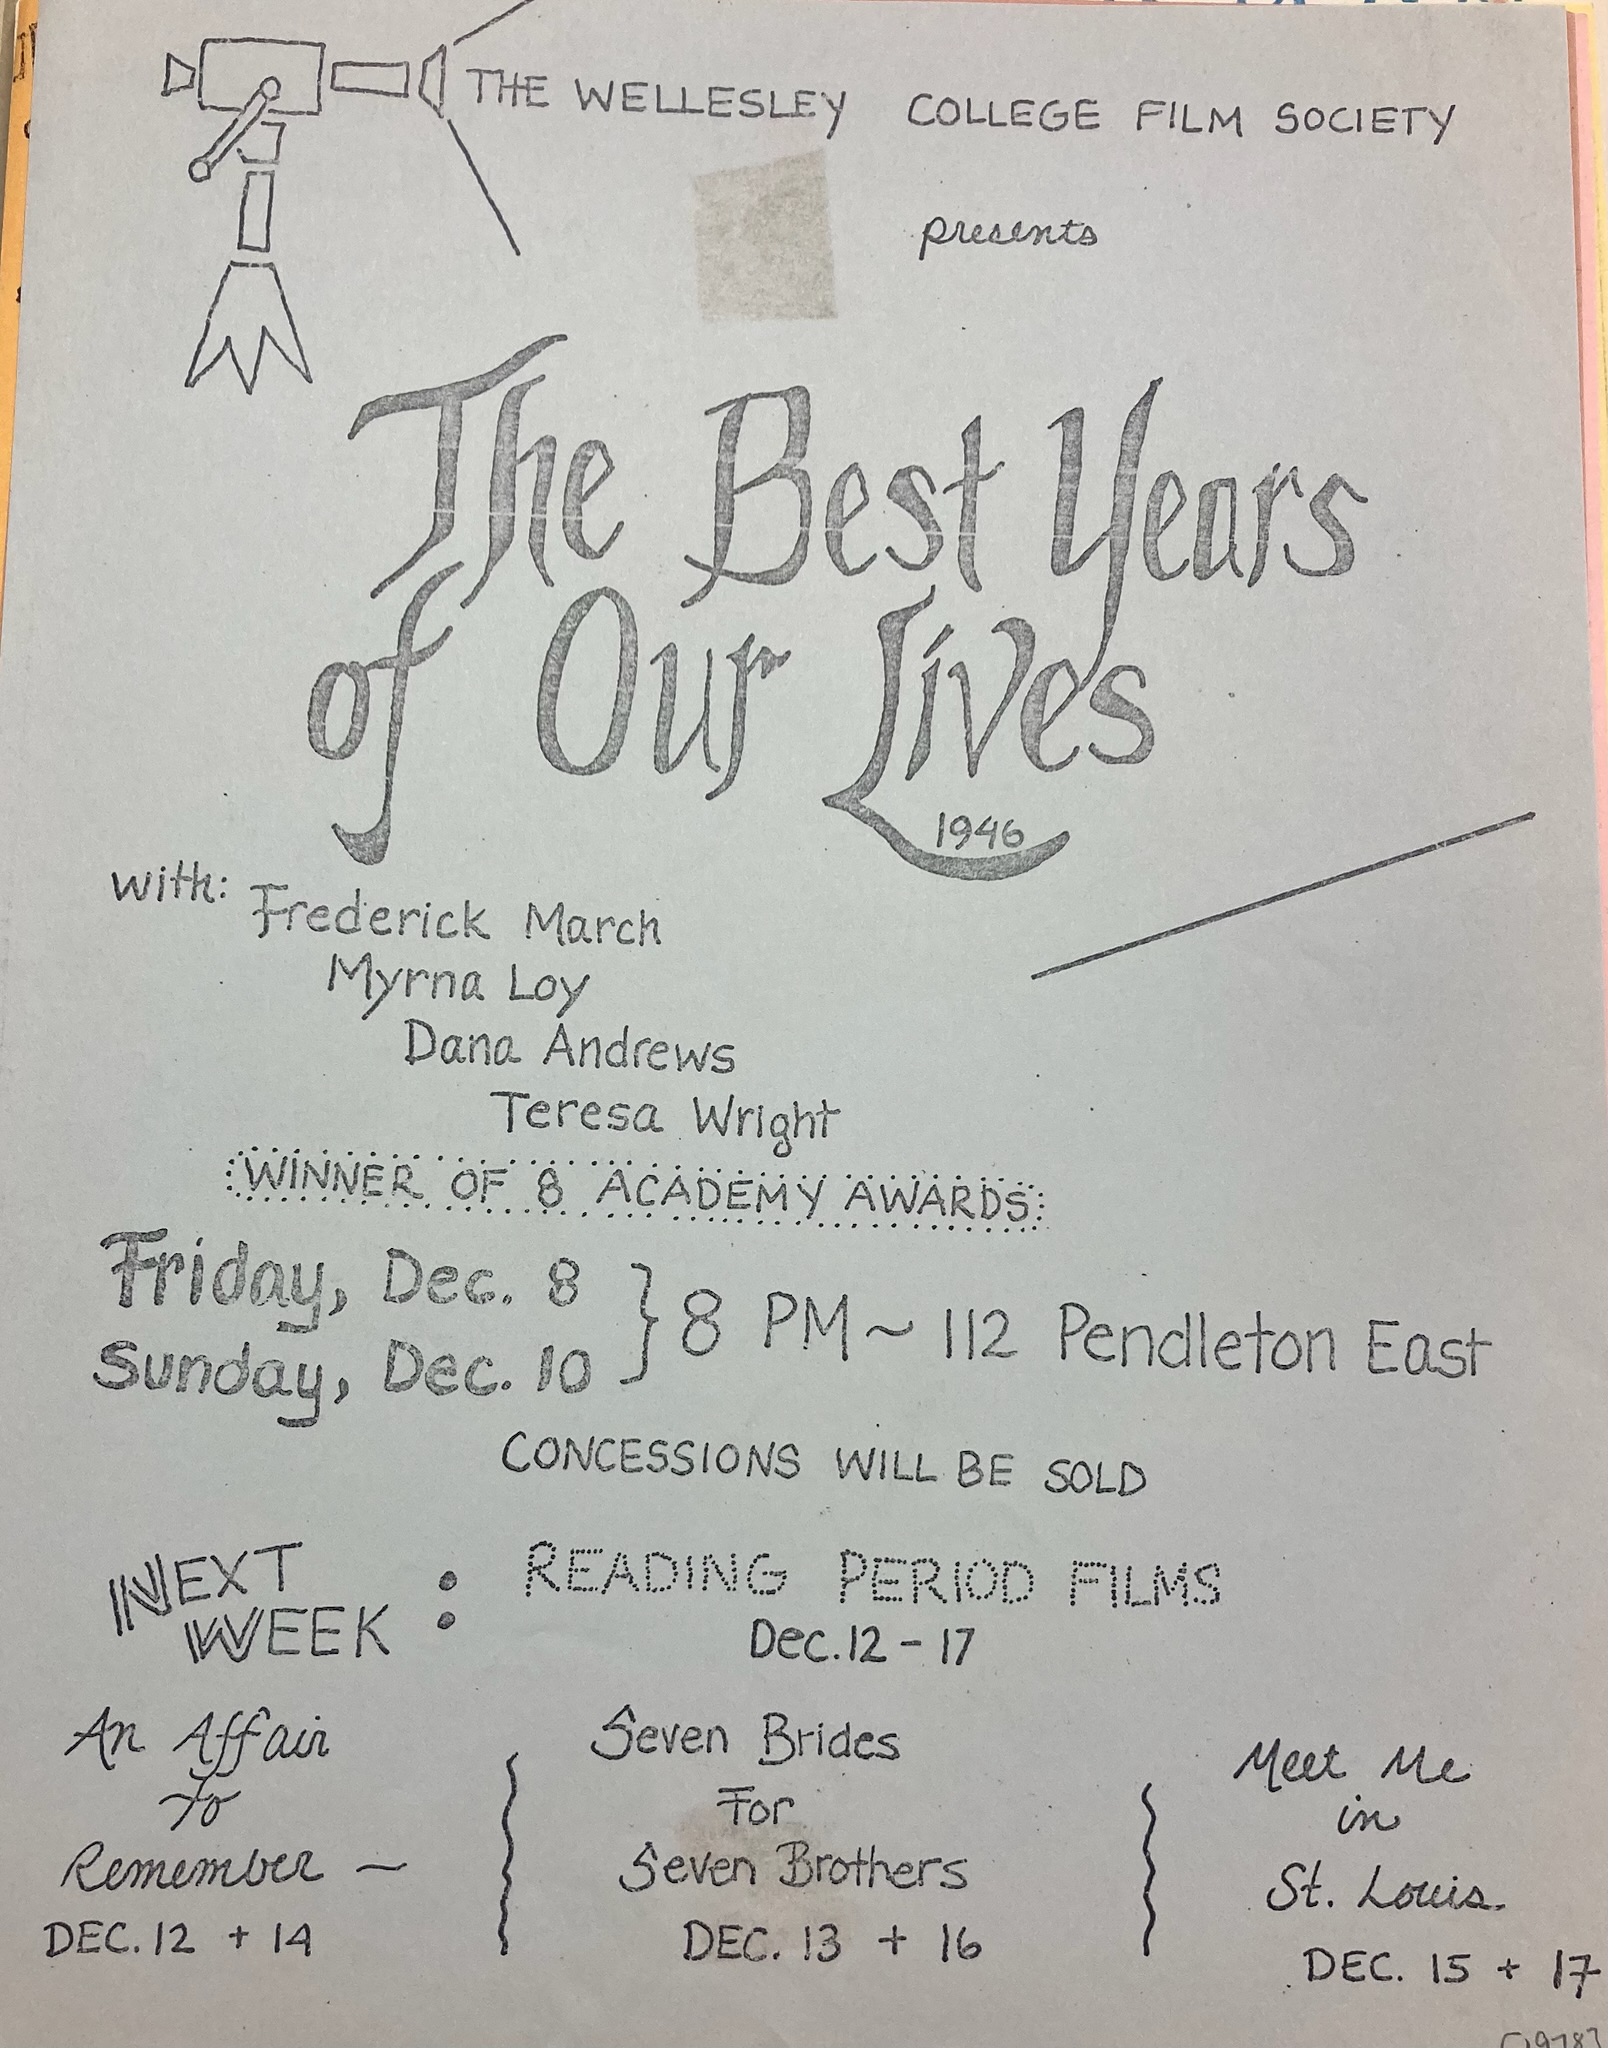 THE WELLESLEY COLLEGE FILM SOCIETY
presents
The Best Years
of Our Lives
1946
with: Frederick March
Myrna Loy
Dana Andrews
Teresa Wright
WINNER OF 8 ACADEMY AWARDS
Friday, Dec. 8
Sunday, Dec. 10 } 8 PM ~ 112 Pendleton East
CONCESSIONS WILL BE SOLD
NEXT WEEK : READING PERIOD FILMS
Dec. 12 - 17
An Affair
To
Remember ~
DEC. 12 + 14
Seven Brides
For
Seven Brothers
DEC. 13 + 16
Meet Me
in
St. Louis.
DEC. 15 + 17